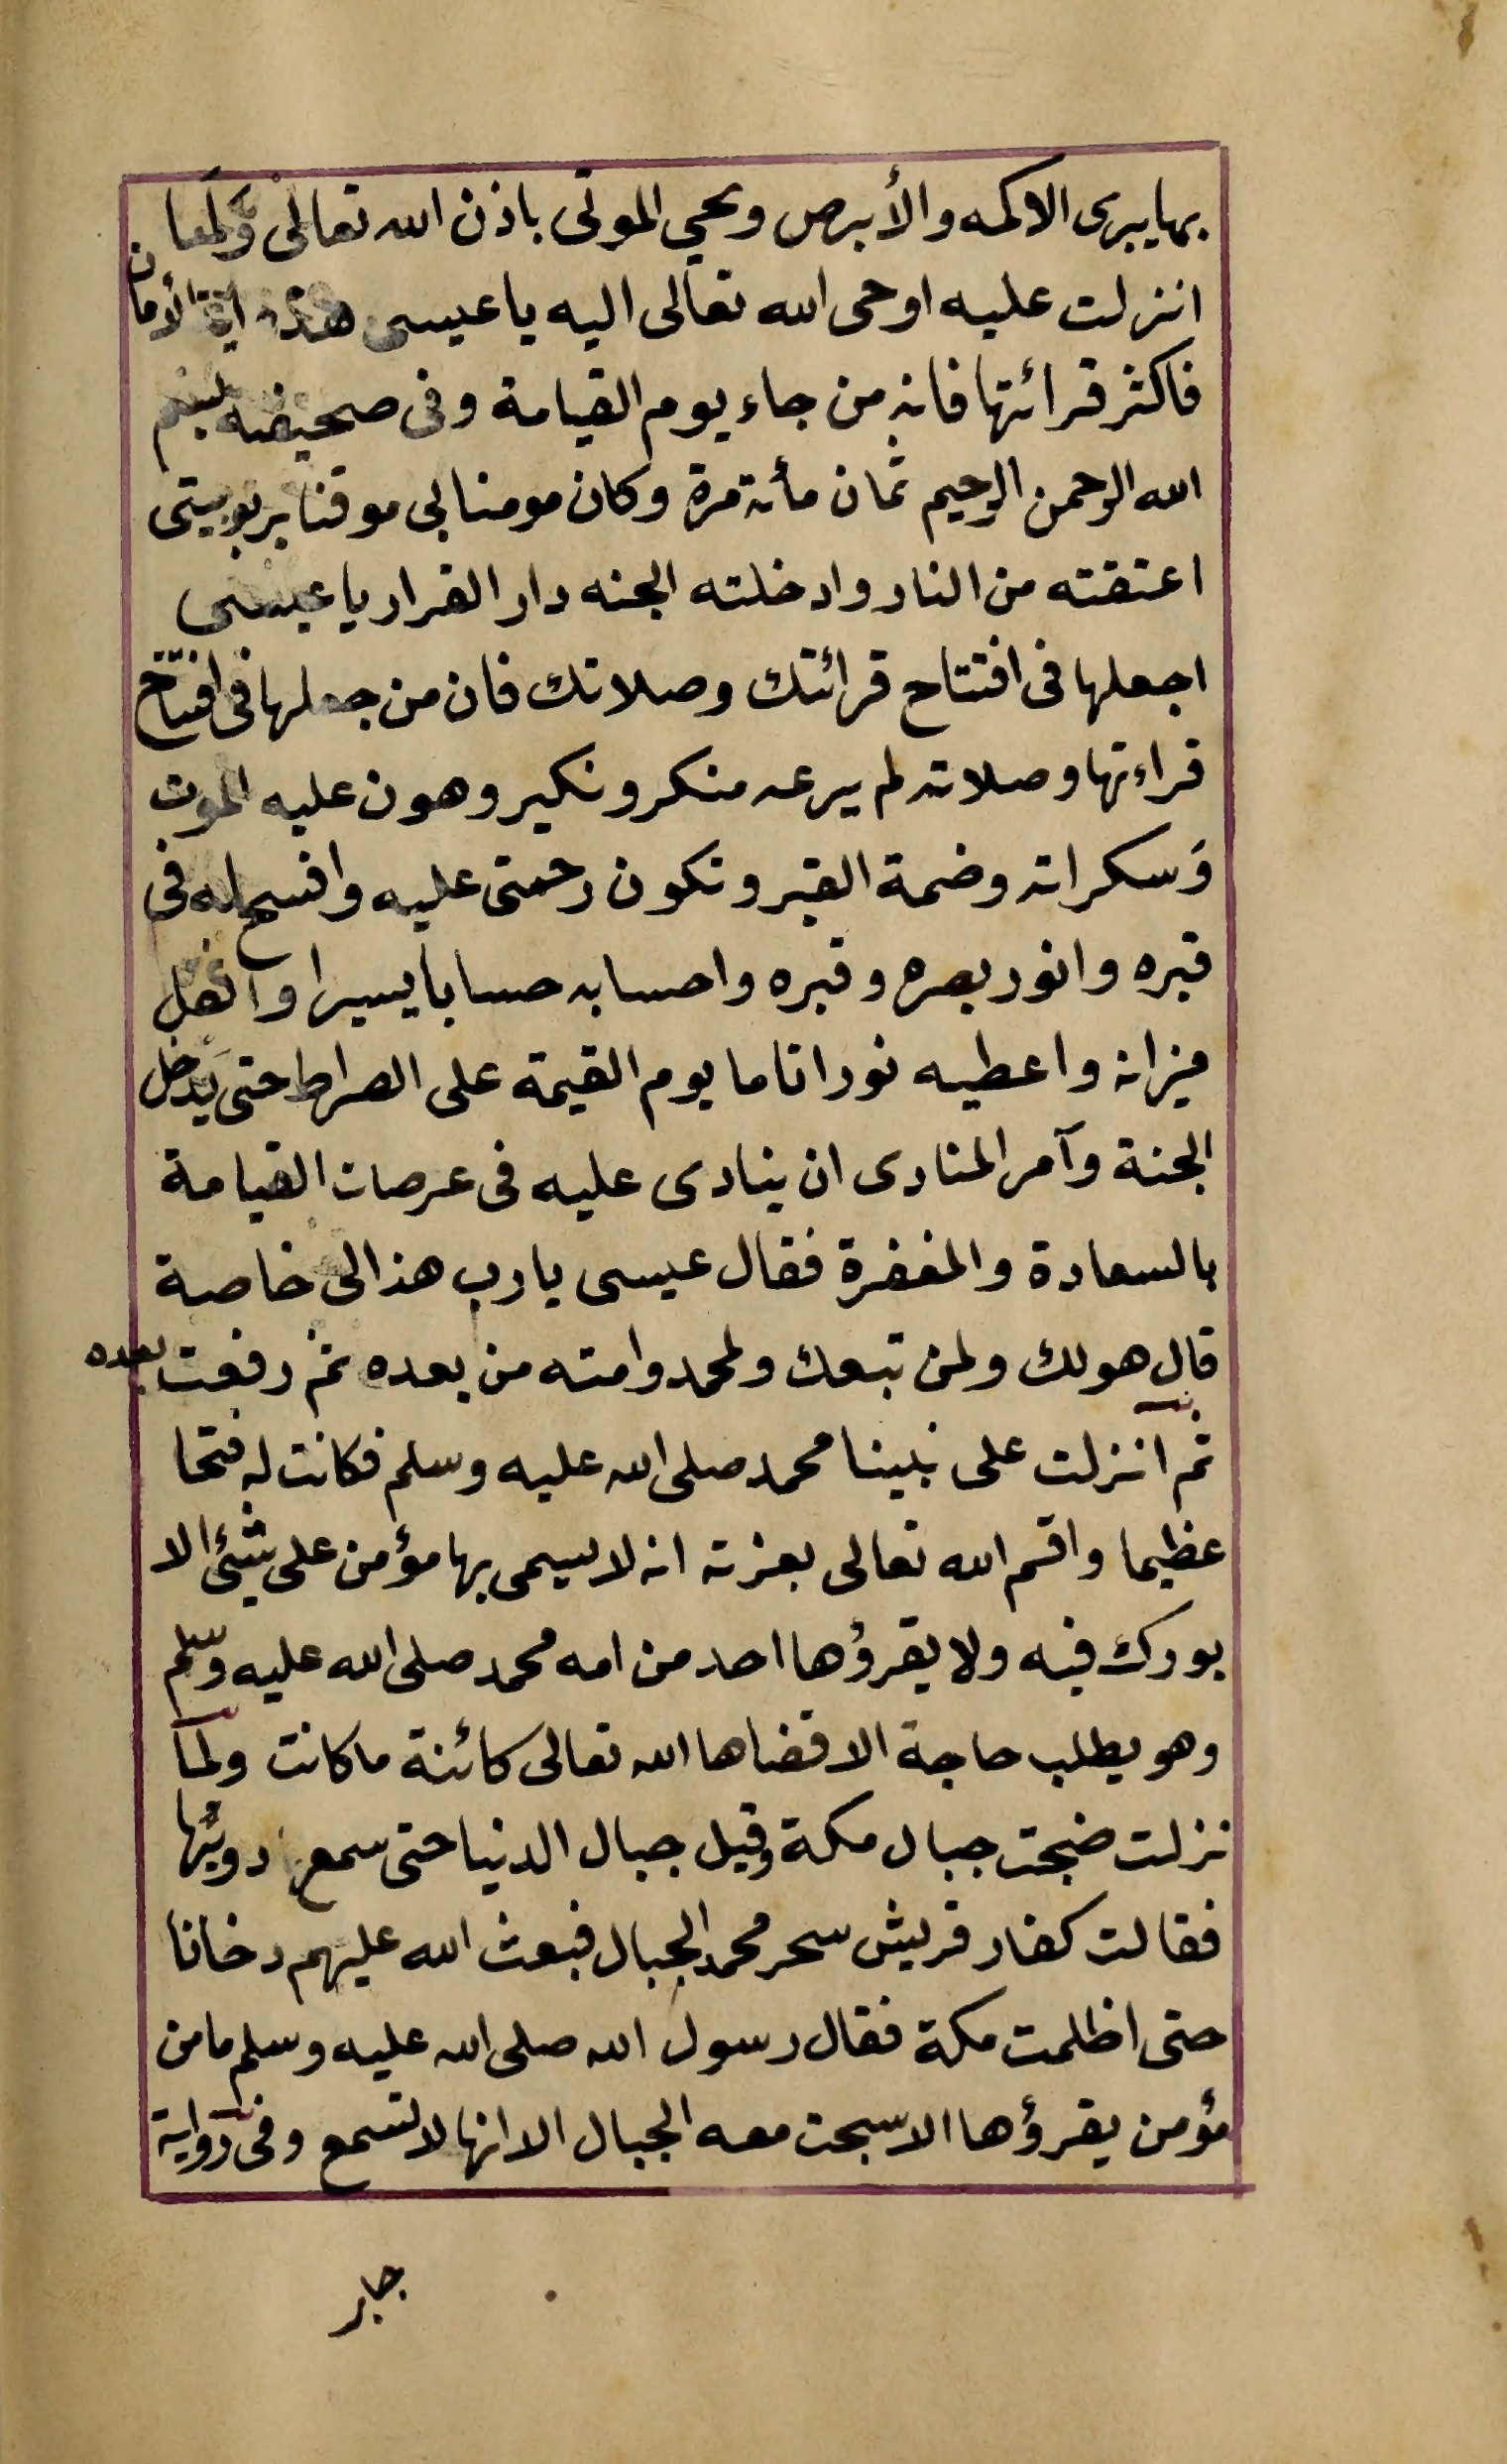 بها يبرى الاكمه والأبرص ويحيي الموتى باذن الله تعالى وَلَما
انزلت عليه اوحى الله تعالى اليه يا عيسى هذه اية الأمان
فاكثر قرائتها فانه من جاء يوم القيامة وفى صحيفته بسم
الله الرحمن الرحيم ثمان مأته مرة وكان مومنا بى موقنا بربوبيتى
اعتقته من النار وادخلته الجنه دار القرار يا عيسى
اجعلها فى افتتاح قرائتك وصلاتك فان من جعلها فى افتتاح
قراءتها وصلاته لم يرعه منكر ونكير وهون عليه الموت
وَسكراته وضمة القبر وتكون رحمتى عليه وافسح له فى
قبره وانور بصره وقبره واحسابه حسابا يسيرا واثقل
ميزانه واعطيه نورا تاما يوم القيمة على الصراط حتى يَدخل
الجنة وآمر المنادى ان ينادى عليه فى عرصات القيامة
بالسعادة والمغفرة فقال عيسى يارب هذا لى خاصة
قال هو لك ولمن تبعك ولمحمد وامته من بعده ثم رفعت بعده
ثم انزلت على نبينا محمد صلى الله عليه وسلم فكانت له فتحا
عظيما واقسم الله تعالى بعزته انه لا يسمى بها مؤمن على شيئ الا
بورك فيه ولا يقرؤها احد من امه محمد صلى الله عليه وسلم
وهو يطلب حاجة الا قضاها الله تعالى كائنة ما كانت ولما
نزلت ضجت جبال مكة وقيل جبال الدنيا حتى سمع دويّها
فقالت كفار قريش سحر محمد الجبال فبعث الله عليهم دخانا
حتى اظلمت مكة فقال رسول الله صلى الله عليه وسلم ما من
مؤمن يقرؤها الا سبحت معه الجبال الا انها لا تسمع وفى رواية
جابر